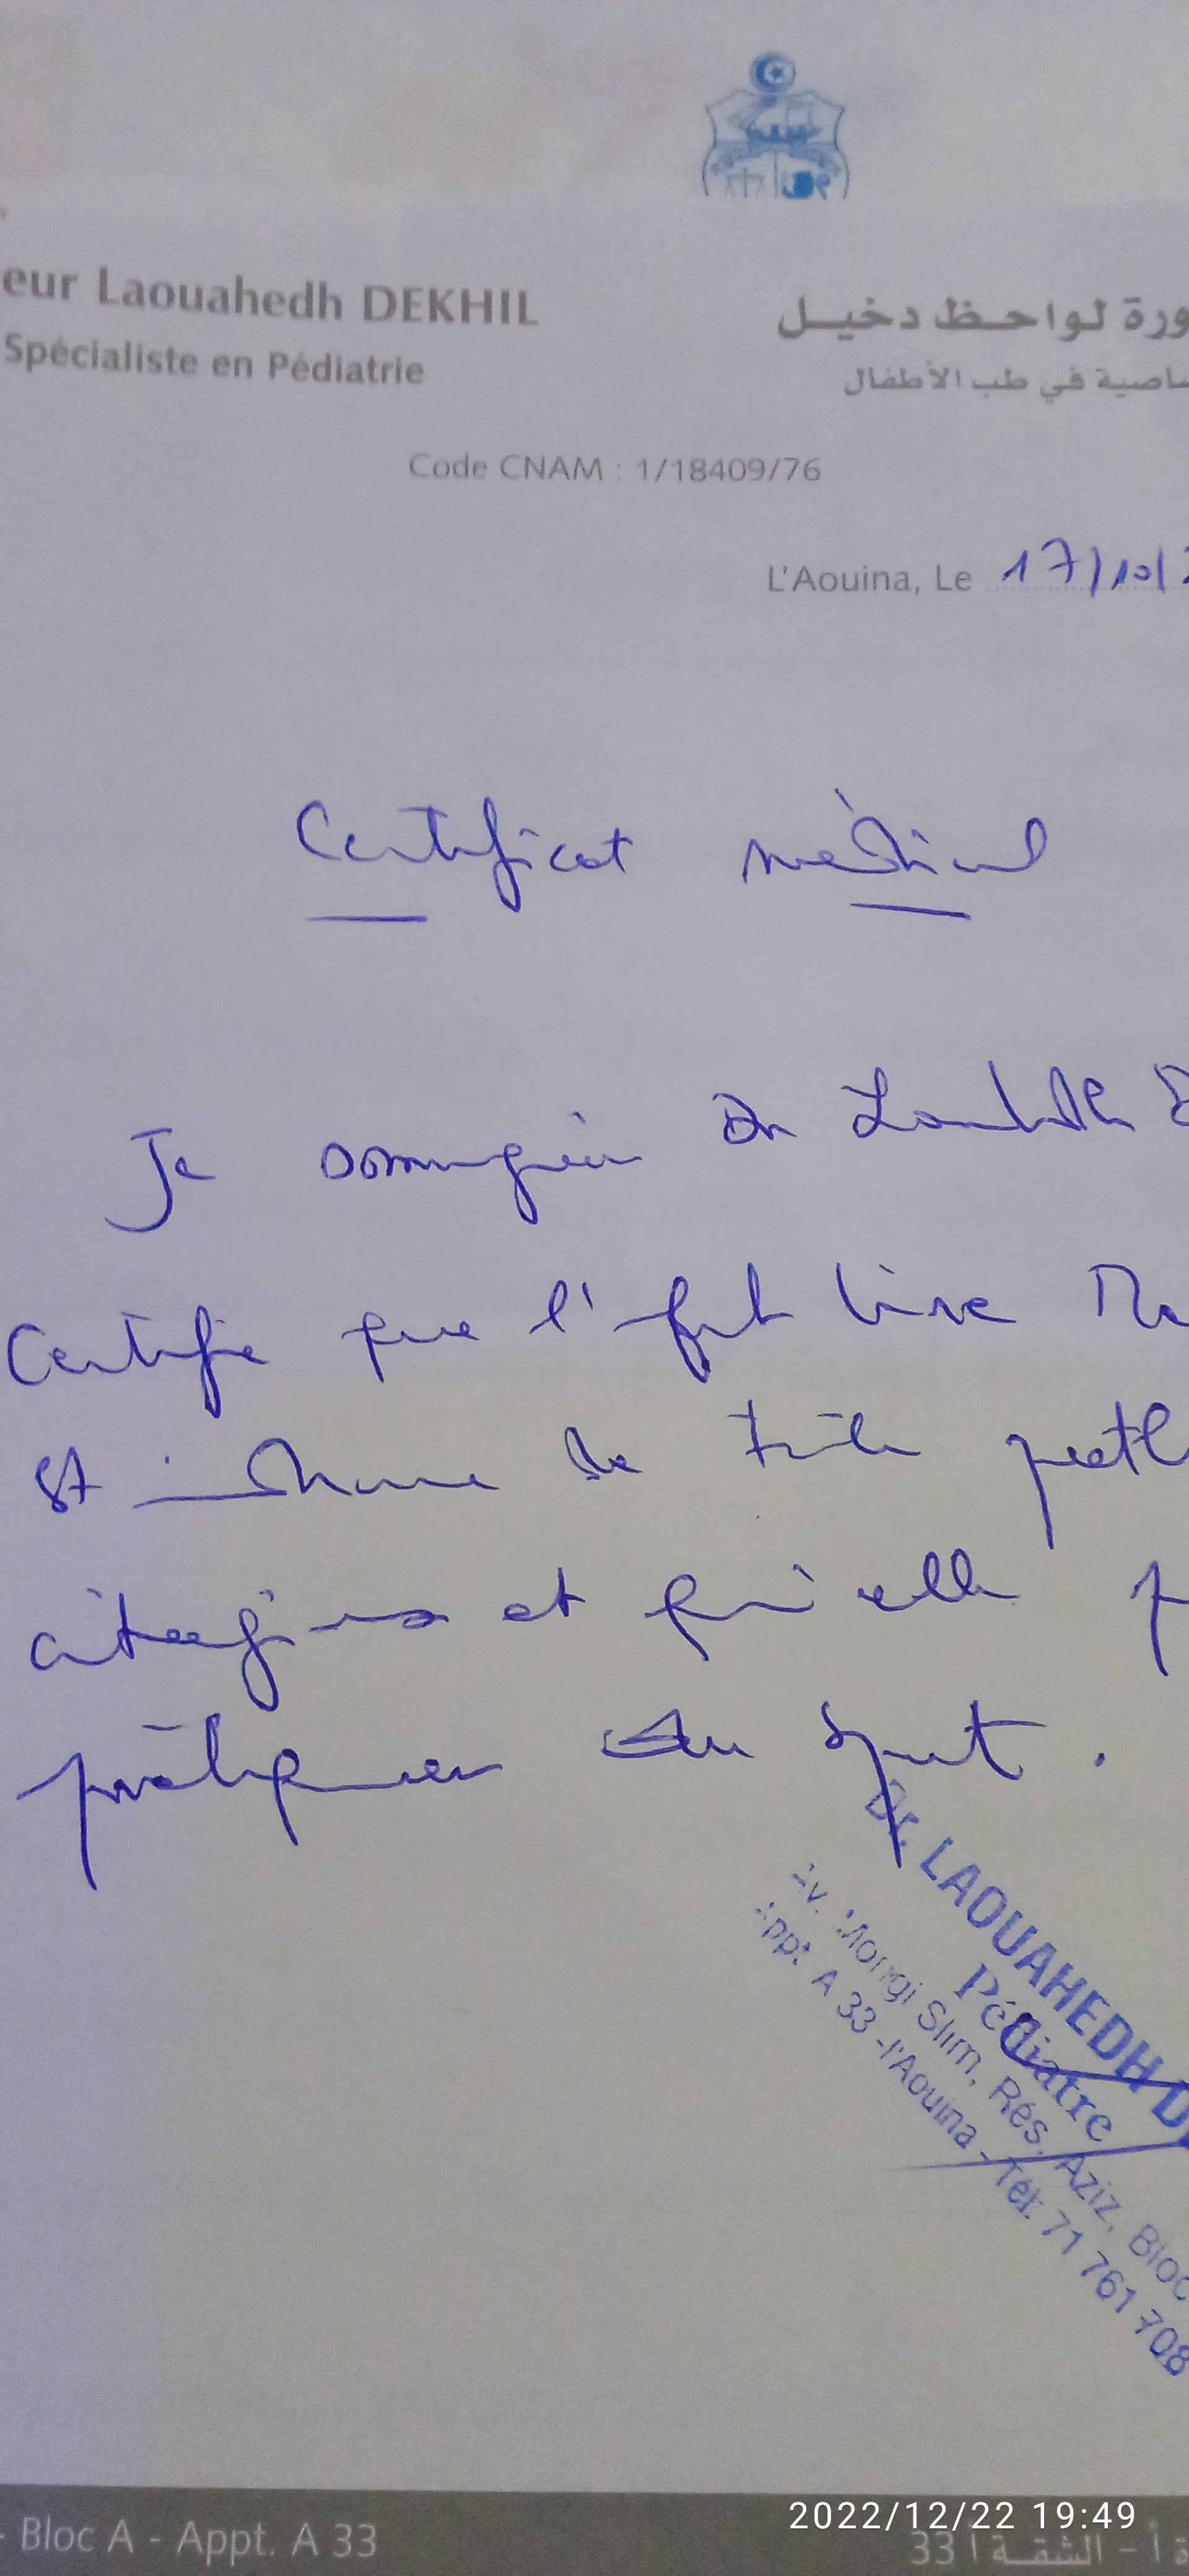 eur Laouahedh DEKHIL
ورة لواحظ دخيل
Spécialiste en Pédiatrie
اصية في طب الأطفال
Code CNAM : 1/18409/76
L'Aouina, Le 17/10/2
Certificat médical
Je soussignée Dr
Certifie que l'enfant Me
est indemne de toute path
et qu'elle p
pratiquer du sport.
Dr. LAOUAHEDH D
Pédiatre
Av. Mongi Slim, Rés. Aziz, Bloc
Appt. A 33 -l'Aouina - Tél: 71 761 708
- Bloc A - Appt. A 33
ة أ - الشقة أ 33
2022/12/22 19:49